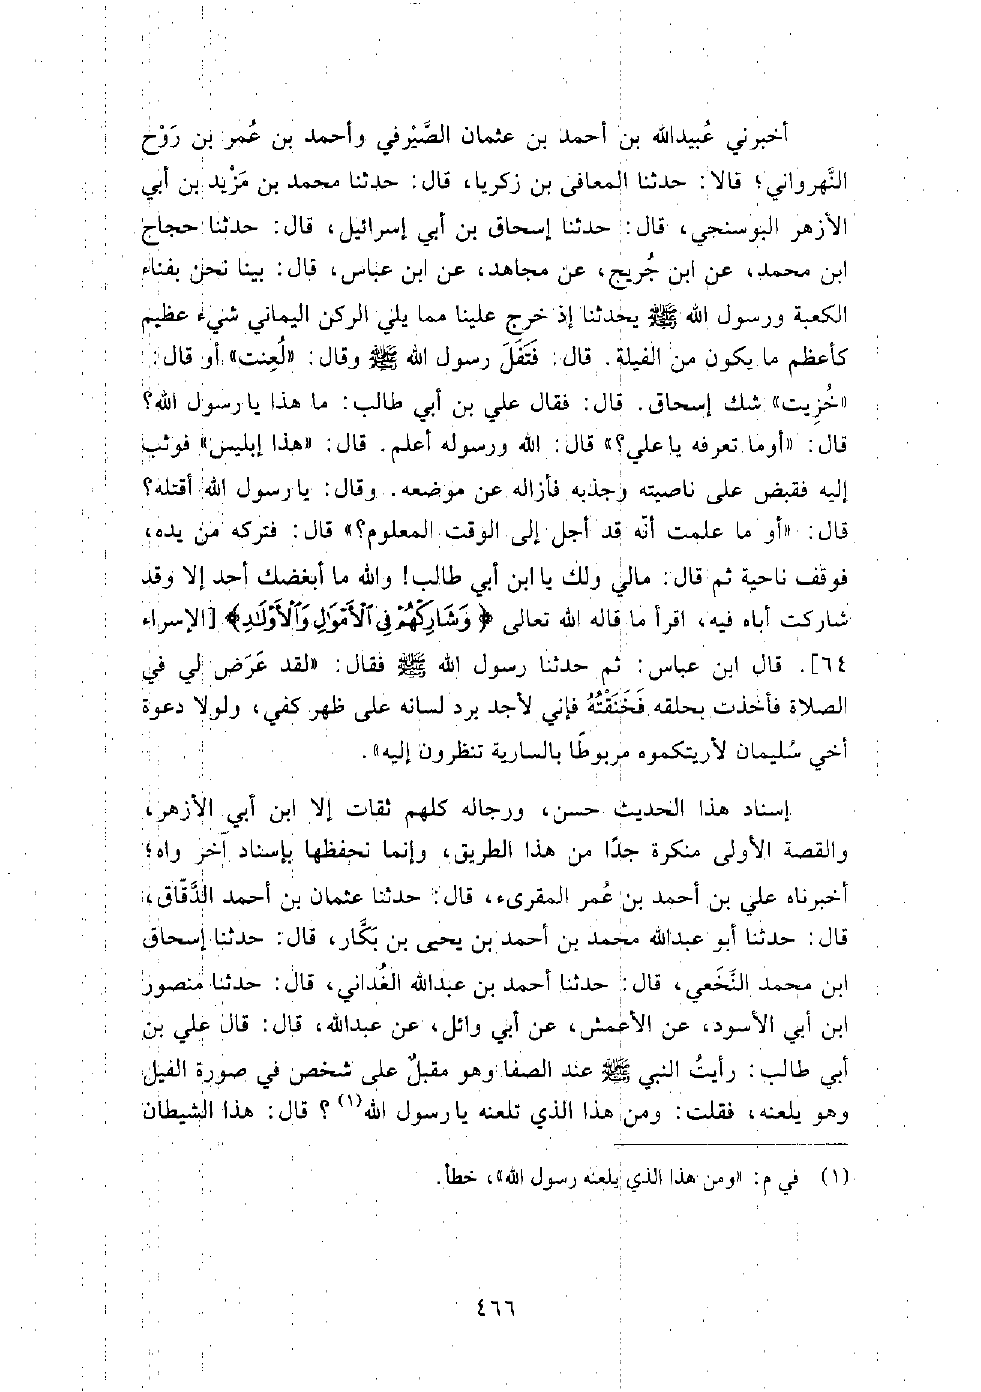 أخبرني عُبيدالله بن أحمد بن عثمان الصَّيْرفي وأحمد بن عُمر بن رَوْح
النَّهرواني؛ قالا: حدثنا المعافى بن زكريا، قال: حدثنا محمد بن مَزْيد بن أبي
الأزهر البوسنجي، قال: حدثنا إسحاق بن أبي إسرائيل، قال: حدثنا حجاج
ابن محمد، عن ابن جُريج، عن مجاهد، عن ابن عباس، قال: بينا نحن بفناء
الكعبة ورسول الله ﷺ يحدثنا إذ خرج علينا مما يلي الركن اليماني شيء عظيم
كأعظم ما يكون من الفيلة. قال: فَتَفَلَ رسول الله ﷺ وقال: «لُعِنت» أو قال:
«خُزِيت» شك إسحاق. قال: فقال علي بن أبي طالب: ما هذا يا رسول الله؟
قال: «أوما تعرفه يا علي؟» قال: الله ورسوله أعلم. قال: «هذا إبليس» فوثب
إليه فقبض على ناصيته وجذبه فأزاله عن موضعه. وقال: يا رسول الله أقتله؟
قال: «أو ما علمت أنّه قد أجل إلى الوقت المعلوم؟» قال: فتركه من يده،
فوقف ناحية ثم قال: مالي ولك يا ابن أبي طالب! والله ما أبغضك أحد إلا وقد
شاركت أباه فيه، اقرأ ما قاله الله تعالى ﴿وَشَارِكْهُمْ فِي ٱلْأَمْوَٰلِ وَٱلْأَوْلَٰدِ﴾ [الإسراء
٦٤]. قال ابن عباس: ثم حدثنا رسول الله ﷺ فقال: «لقد عَرَض لي في
الصلاة فأخذت بحلقه فَخَنَقْتُهُ فإني لأجد برد لسانه على ظهر كفي، ولولا دعوة
أخي سُليمان لأريتكموه مربوطًا بالسارية تنظرون إليه».
إسناد هذا الحديث حسن، ورجاله كلهم ثقات إلا ابن أبي الأزهر،
والقصة الأولى منكرة جدًا من هذا الطريق، وإنما نحفظها بإسناد آخر واه؛
أخبرناه علي بن أحمد بن عُمر المقرىء، قال: حدثنا عثمان بن أحمد الدَّقاق،
قال: حدثنا أبو عبدالله محمد بن أحمد بن يحيى بن بَكَّار، قال: حدثنا إسحاق
ابن محمد النَّخَعي، قال: حدثنا أحمد بن عبدالله الغُداني، قال: حدثنا منصور
ابن أبي الأسود، عن الأعمش، عن أبي وائل، عن عبدالله، قال: قال علي بن
أبي طالب: رأيتُ النبي ﷺ عند الصفا وهو مقبلٌ على شخص في صورة الفيل
وهو يلعنه، فقلت: ومن هذا الذي تلعنه يا رسول الله(١)؟ قال: هذا الشيطان
(١) في م: «ومن هذا الذي يلعنه رسول الله»، خطأ.
٤٦٦